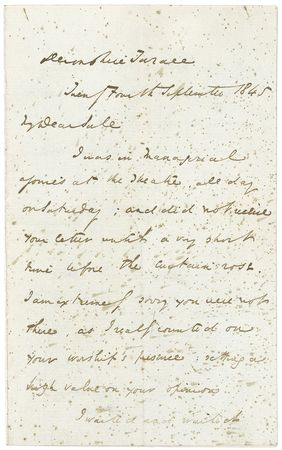 Devonshire Terrace
Twenty Fourth September 1845
My Dear Sale
I was in Managerial
agonies at the Theatre all day
on Saturday; and did not receive
your letter until a very short
time before the curtain rose.
I am extremely sorry you were not
there as I really counted on
your worship's presence: setting a
high value on your opinion.
I waited and waited